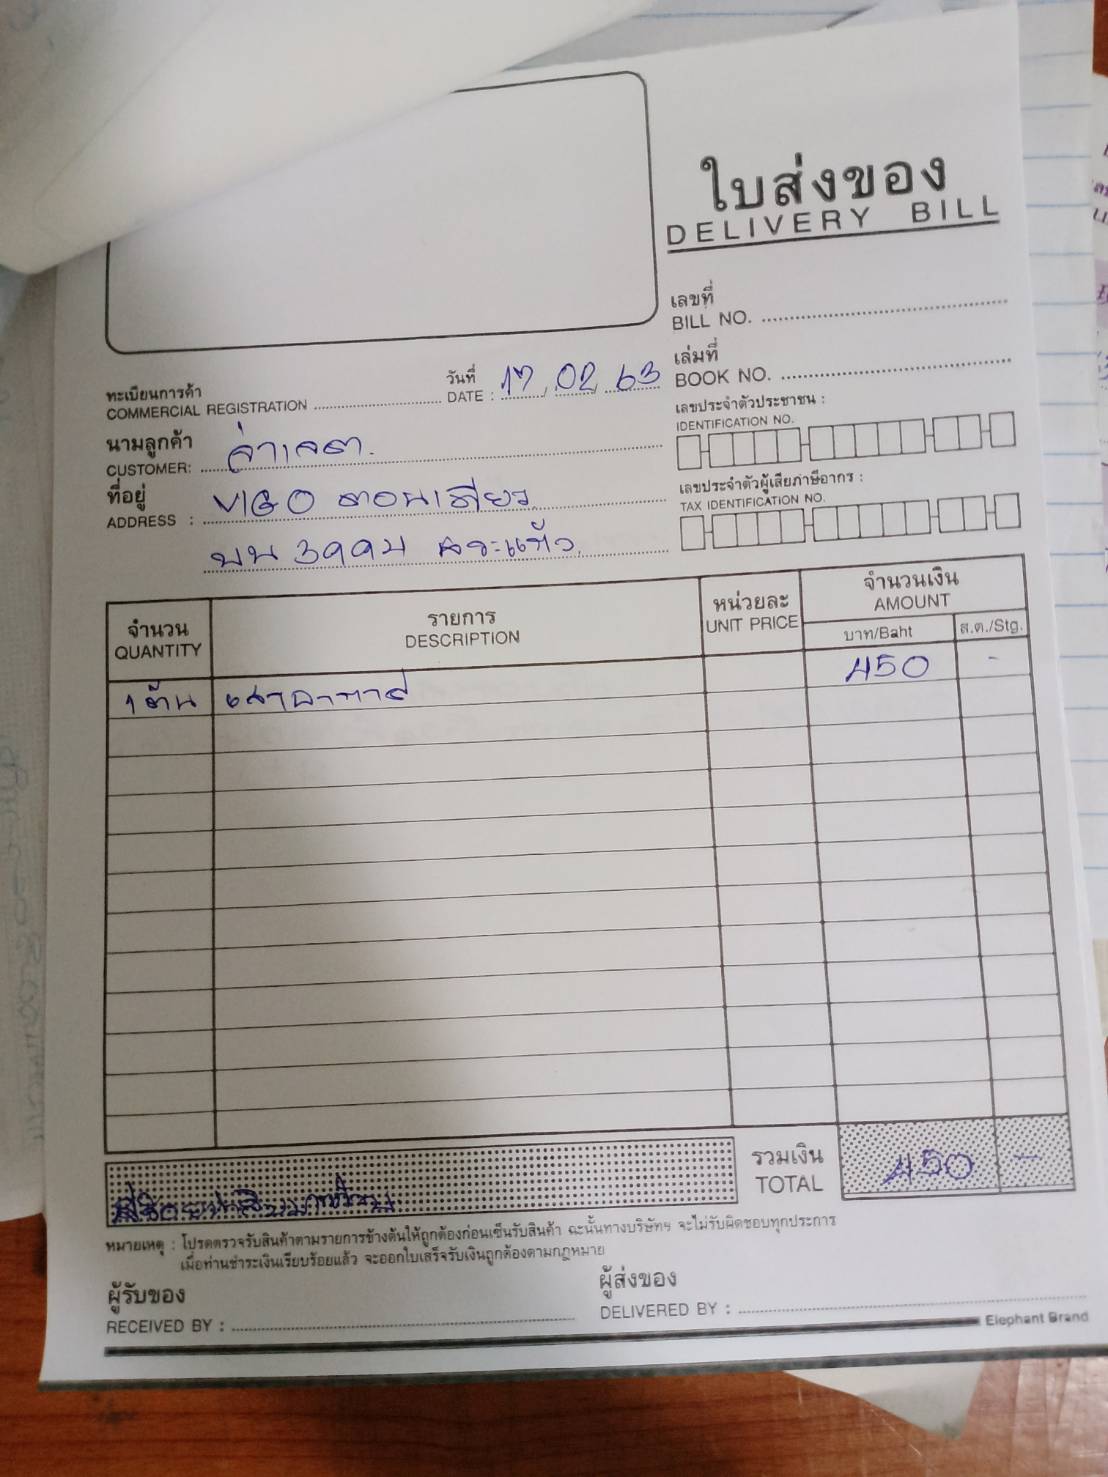 ใบส่งของ
DELIVERY BILL
เลขที่
BILL NO.
เล่มที่
BOOK NO.
ทะเบียนการค้า
COMMERCIAL REGISTRATION
วันที่
DATE : 17 02 63
เลขประจำตัวประชาชน :
IDENTIFICATION NO.
นามลูกค้า
CUSTOMER:
ที่อยู่
ADDRESS : VIGO ตอนเดียว
บน 3993 สระแก้ว
เลขประจำตัวผู้เสียภาษีอากร :
TAX IDENTIFICATION NO.
จำนวน
QUANTITY
รายการ
DESCRIPTION
หน่วยละ
UNIT PRICE
จำนวนเงิน
AMOUNT
บาท/Baht
ส.ต./Stg.
450 -
1 ต้น เสาอากาศ
รวมเงิน
TOTAL
450 -
หมายเหตุ : โปรดตรวจรับสินค้าตามรายการข้างต้นให้ถูกต้องก่อนเซ็นรับสินค้า ฉะนั้นทางบริษัทฯ จะไม่รับผิดชอบทุกประการ
เมื่อท่านชำระเงินเรียบร้อยแล้ว จะออกใบเสร็จรับเงินถูกต้องตามกฎหมาย
ผู้รับของ
RECEIVED BY :
ผู้ส่งของ
DELIVERED BY :
Elephant Brand